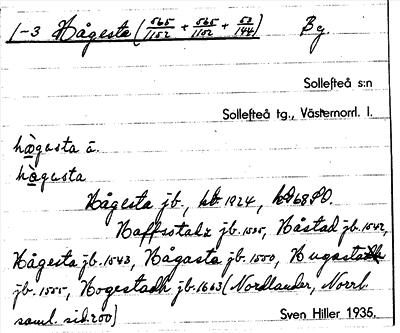 1-3 Hågesta (565/1152 + 565/1152 + 50/144) By.
Sollefteå s:n
Sollefteå tg., Västernorrl. l.
hògusta ä.
hògusta
Hågesta jb., kb 1924,
Haffstadz jb. 1535, Håstad jb. 1542,
Hågesta jb. 1543, Hågasta jb. 1550, Hugastadh
jb. 1555, Hogestadh jb. 1663 (Nordlander, Norrl.
saml. sid. 200)
Sven Hiller 1935.